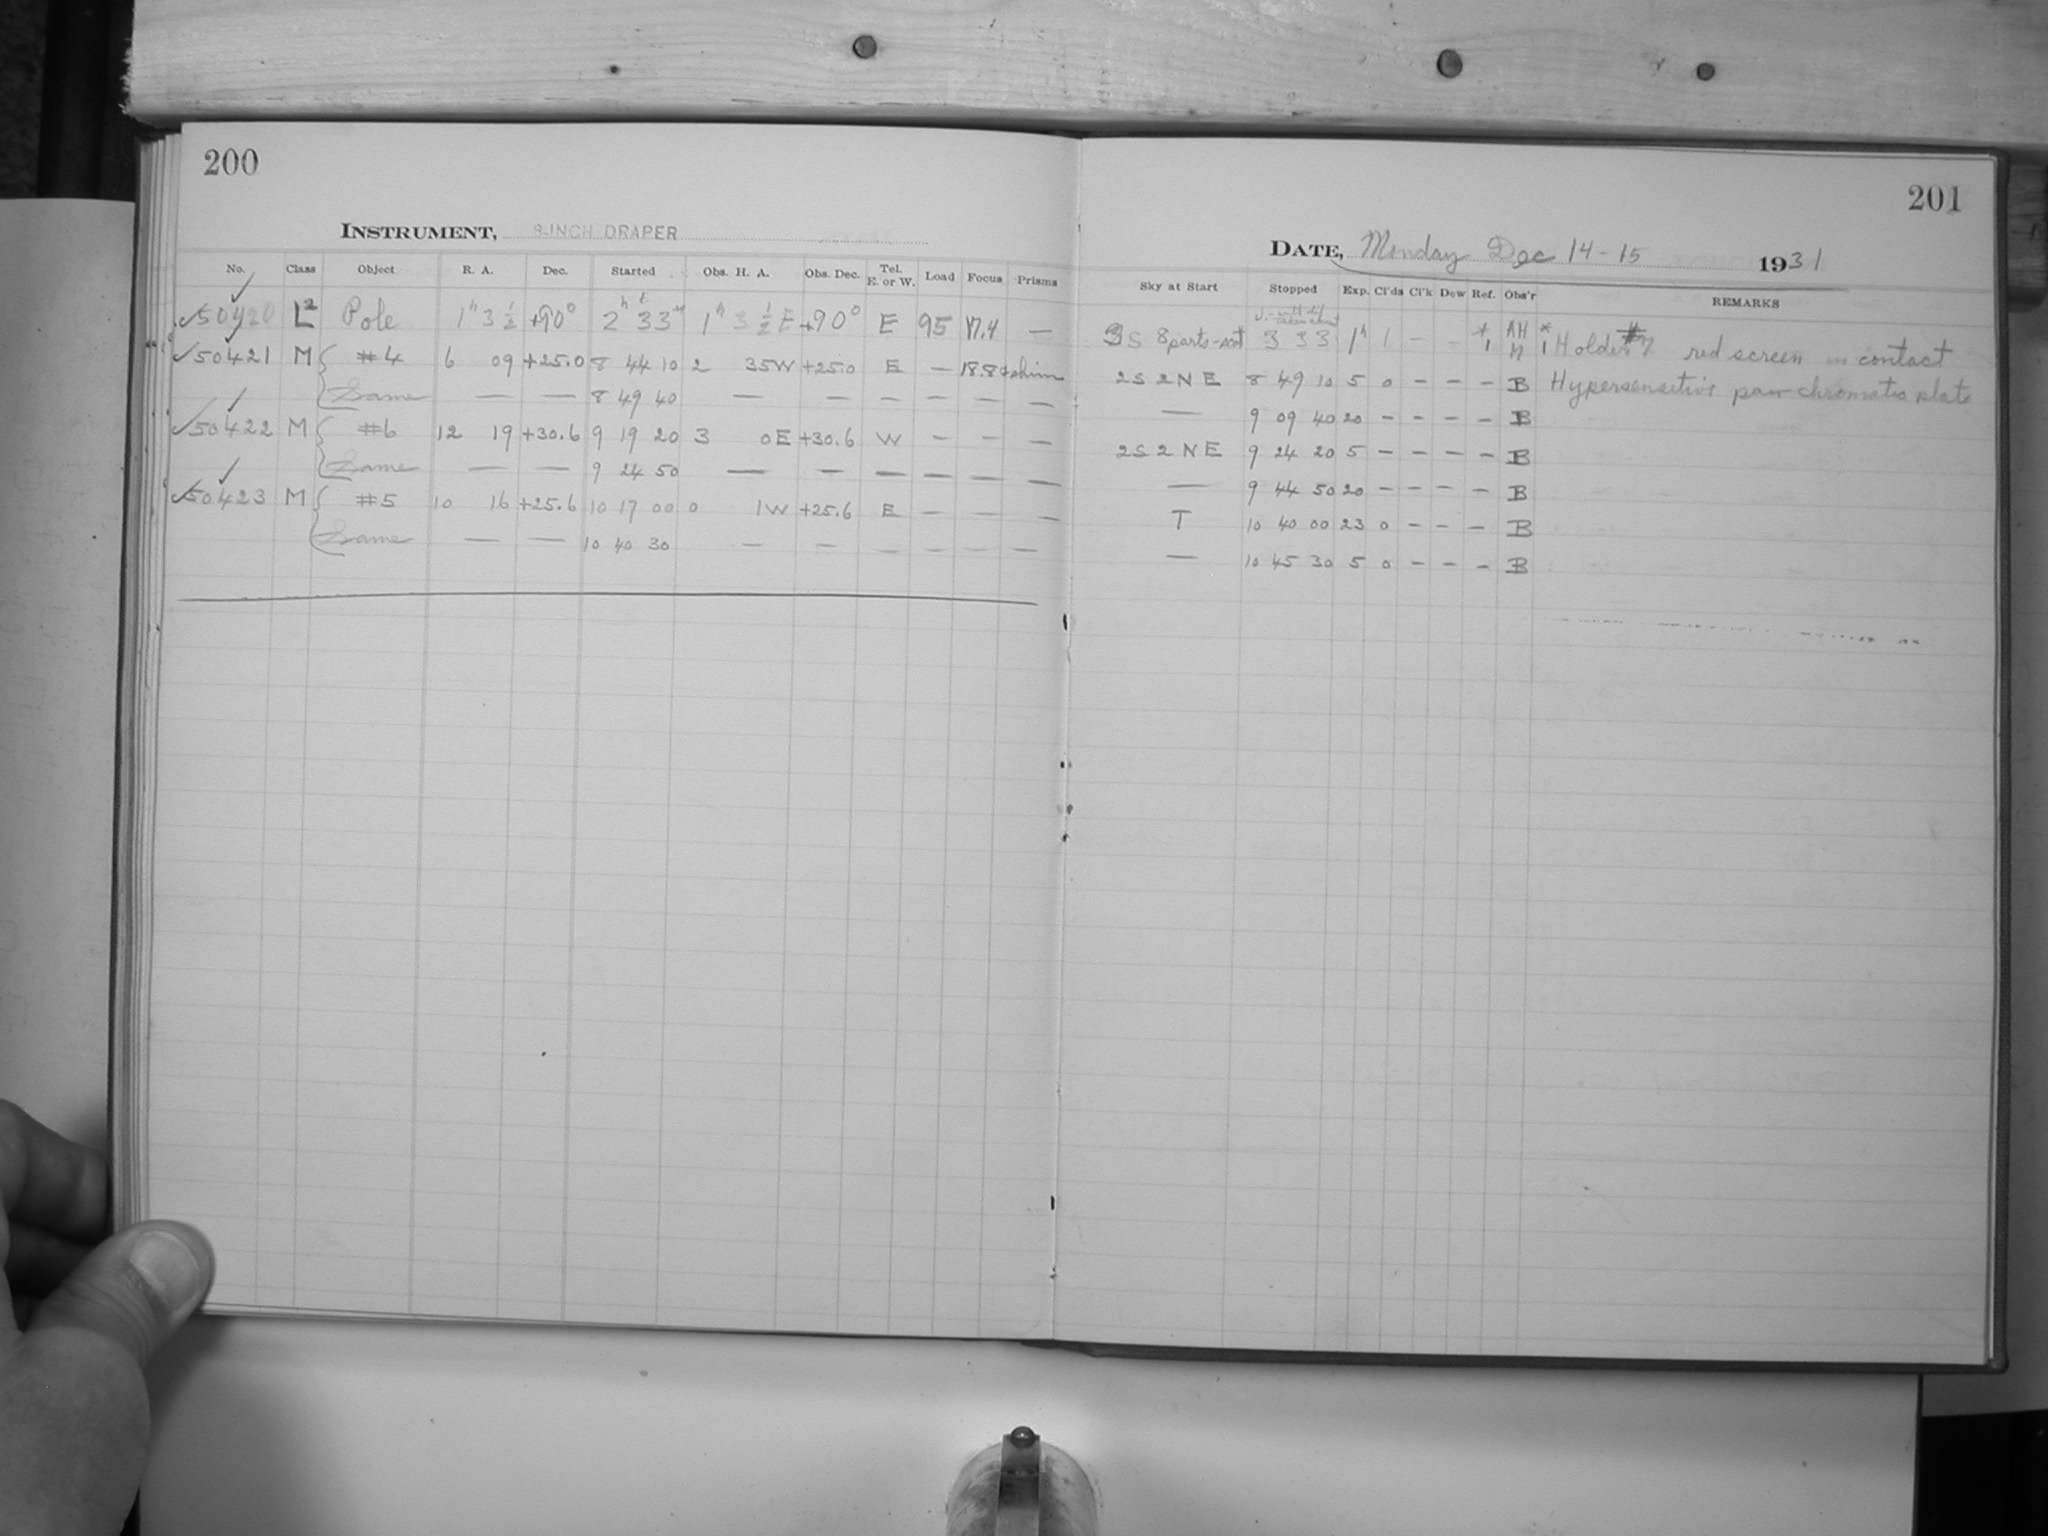 200
INSTRUMENT, 8-INCH DRAPER
No. Class Object R. A. Dec. Started Obs. H. A. Obs. Dec. Tel. E. or W. Load Focus Prisms
50420 L2 Pole 1h 3 1/2 +90° 2h 33m 1h 3 1/2 E +90° E 95 17.4 —
50421 M #4 6 09 +25.0 8 44 10 2 35W +25.0 E — 18.8 + shim
Same — — 8 49 40 — — — — — —
50422 M #6 12 19 +30.6 9 19 20 3 0E +30.6 W — — —
Same — — 9 24 50 — — — — — —
50423 M #5 10 16 +25.6 10 17 00 0 1W +25.6 E — — —
Same — — 10 40 30 — — — — — —
201
DATE, Monday Dec 14-15 1931
Sky at Start Stopped Exp. Cl'ds Cl'k Dew Ref. Obs'r REMARKS
3S 8parts- 3 33 1h 1 — — * 1 AH M * 1 Holder #7 red screen in contact
2S 2NE 8 49 10 5 0 — — — B Hypersensitive panchromatic plate
— 9 09 40 20 — — — — B
2S 2NE 9 24 20 5 — — — — B
— 9 44 50 20 — — — — B
T 10 40 00 23 0 — — — B
— 10 45 30 5 0 — — — B